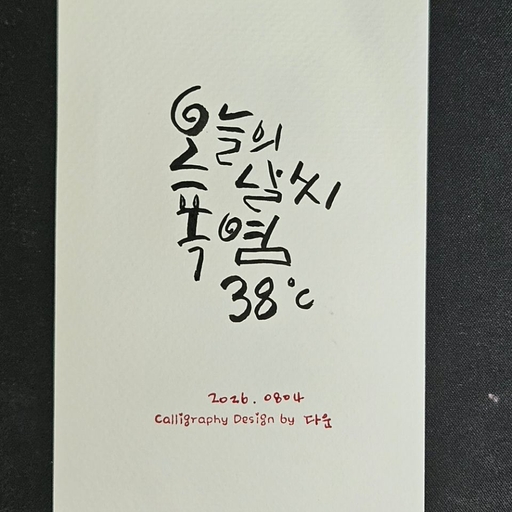 오늘의
날씨
폭염
38°C
2026.0804
Calligraphy Design by 다운